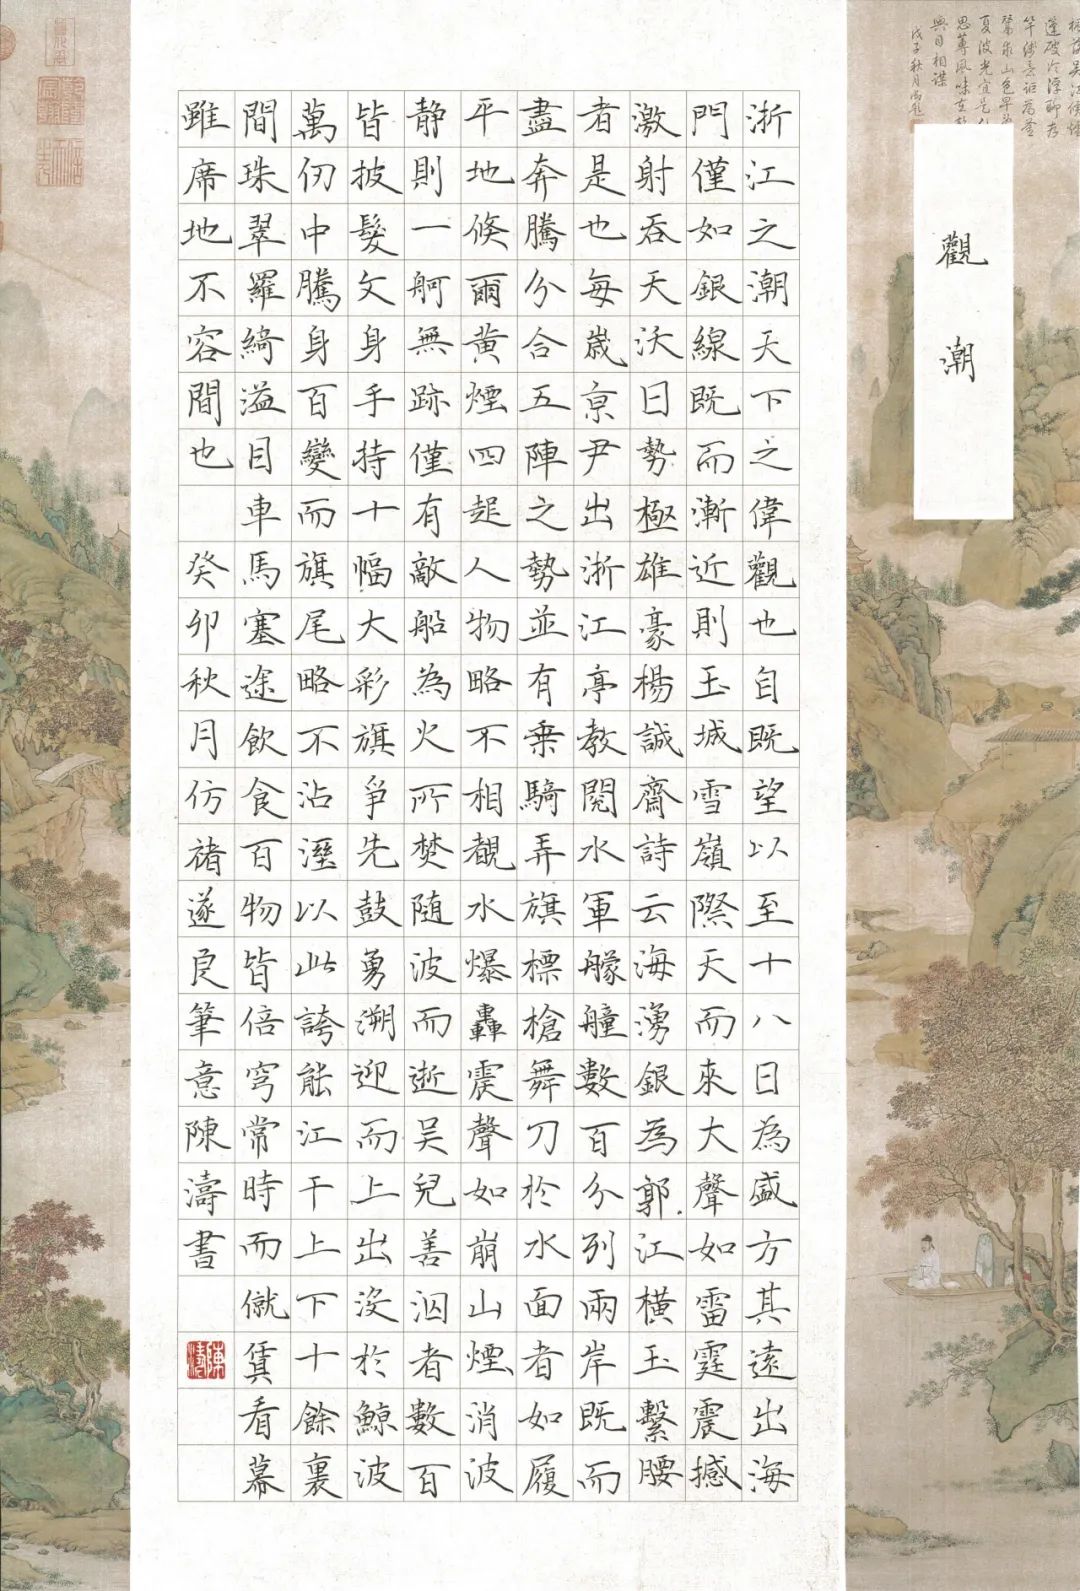 觀潮
浙江之潮天下之偉觀也自既望以至十八日為盛方其遠出海
門僅如銀線既而漸近則玉城雪嶺際天而來大聲如雷霆震撼
激射吞天沃日勢極雄豪楊誠齋詩云海湧銀為郭江橫玉繫腰
者是也每歲京尹出浙江亭教閱水軍艨艟數百分列兩岸既而
盡奔騰分合五陣之勢並有乗騎弄旗標槍舞刀於水面者如履
平地倏爾黃煙四起人物略不相覩水爆轟震聲如崩山煙消波
静則一舸無跡僅有敵船為火所焚随波而逝吴兒善泅者數百
皆披髮文身手持十幅大彩旗爭先鼓勇溯迎而上出没於鯨波
萬仞中騰身百變而旗尾略不沾溼以此誇能江干上下十餘裏
間珠翠羅綺溢目車馬塞途飲食百物皆倍穹常時而僦賃看幕
雖席地不容間也 癸卯秋月仿褚遂良筆意陳濤書
陳濤
與目相謀
戊子秋月